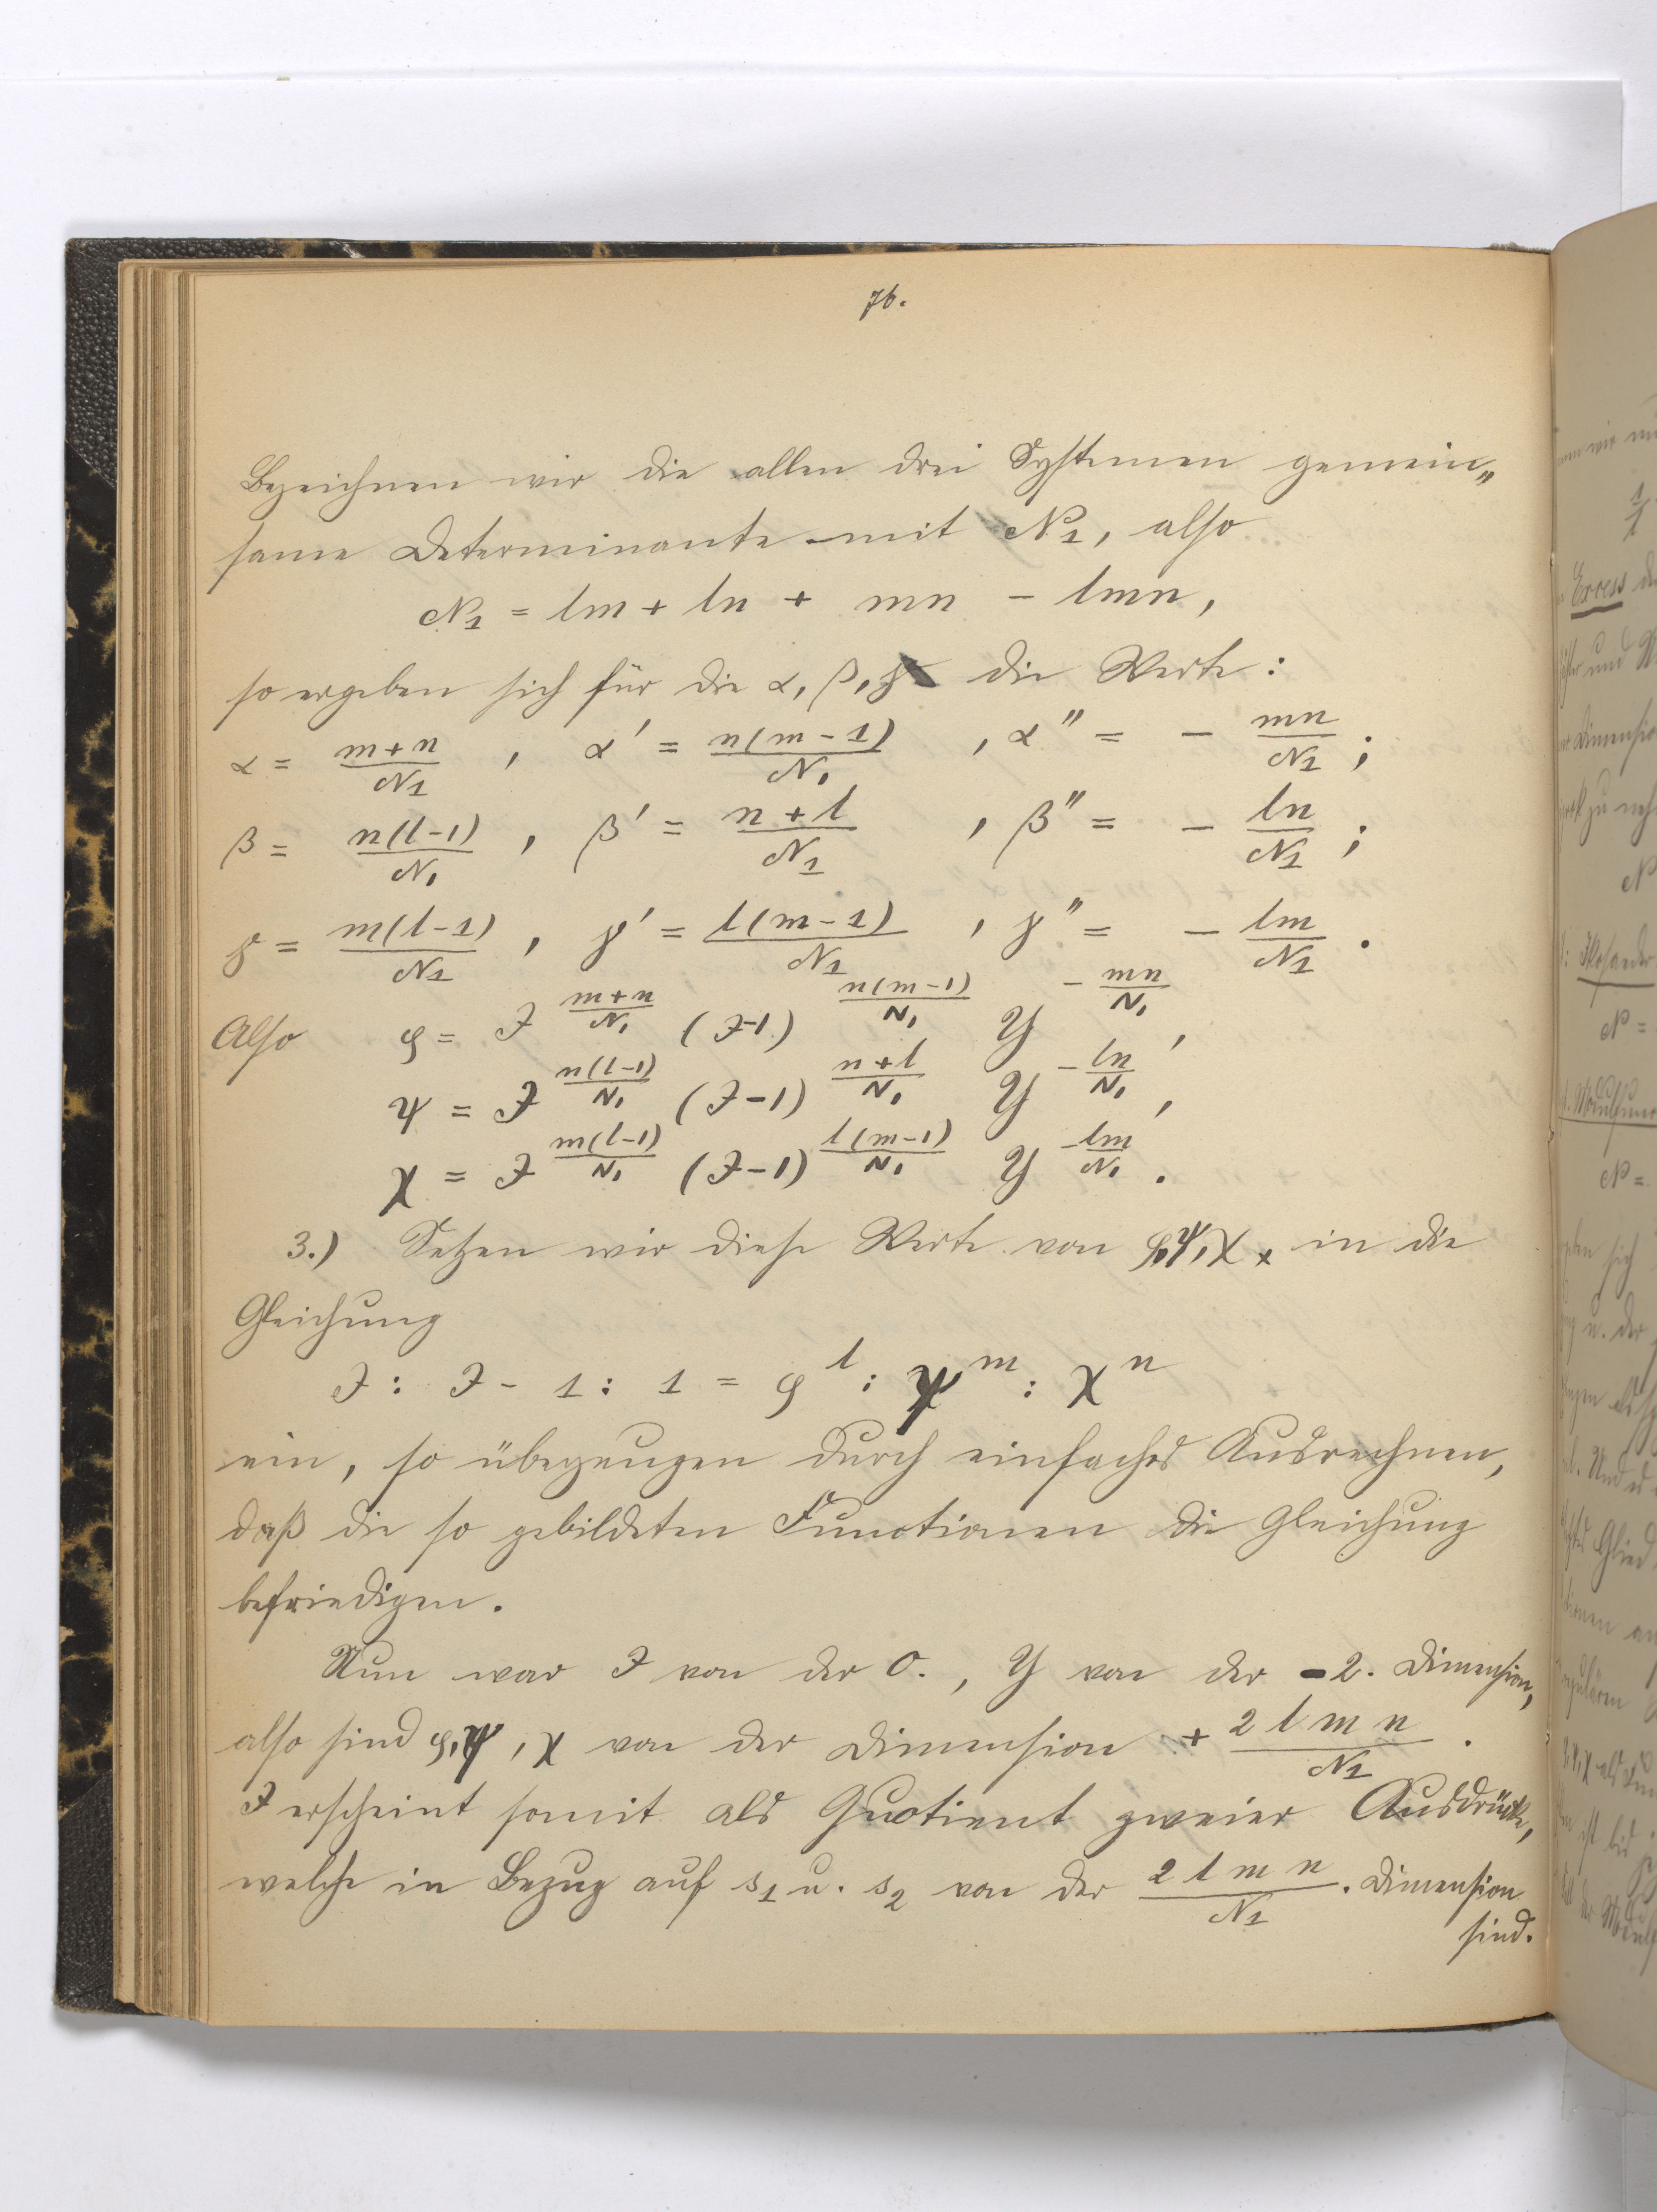 76.
Bezeichnen wir die allen drei Systemen gemein„
same Determinante mit N₁, also
N₁ = lm + ln + mn − lmn,
so ergeben sich für die α, β, γ die Werte:
α = (m+n)/N₁ , α' = n(m−1)/N₁ , α'' = − mn/N₁ ;
β = n(l−1)/N₁ , β' = (n+l)/N₁ , β'' = − ln/N₁ ;
γ = m(l−1)/N₁ , γ' = l(m−1)/N₁ , γ'' = − lm/N₁ .
Also φ = J^{(m+n)/N₁} (J−1)^{n(m−1)/N₁} Y^{−mn/N₁} ,
ψ = J^{n(l−1)/N₁} (J−1)^{(n+l)/N₁} Y^{−ln/N₁} ,
χ = J^{m(l−1)/N₁} (J−1)^{l(m−1)/N₁} Y^{−lm/N₁} .
3.) Setzen wir diese Werte von φ,ψ,χ × in die
Gleichung
J : J − 1 : 1 = φ^l : ψ^m : χ^n
ein, so überzeugen durch einfaches Ausrechnen,
daß die so gebildeten Functionen die Gleichung
befriedigen.
Nun war J von der 0., Y von der −2. Dimension,
also sind φ,ψ,χ von der Dimension + 2lmn/N₁ .
J erscheint somit als Quotient zweier Ausdrücke,
welche in Bezug auf s₁ u. s₂ von der 2lmn/N₁ . Dimension
sind.